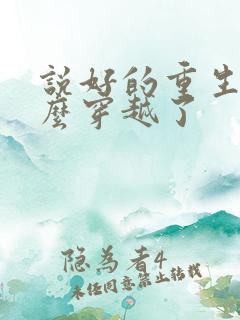 説好的重生
麼穿越了
隐為者4
未经同意禁止转载